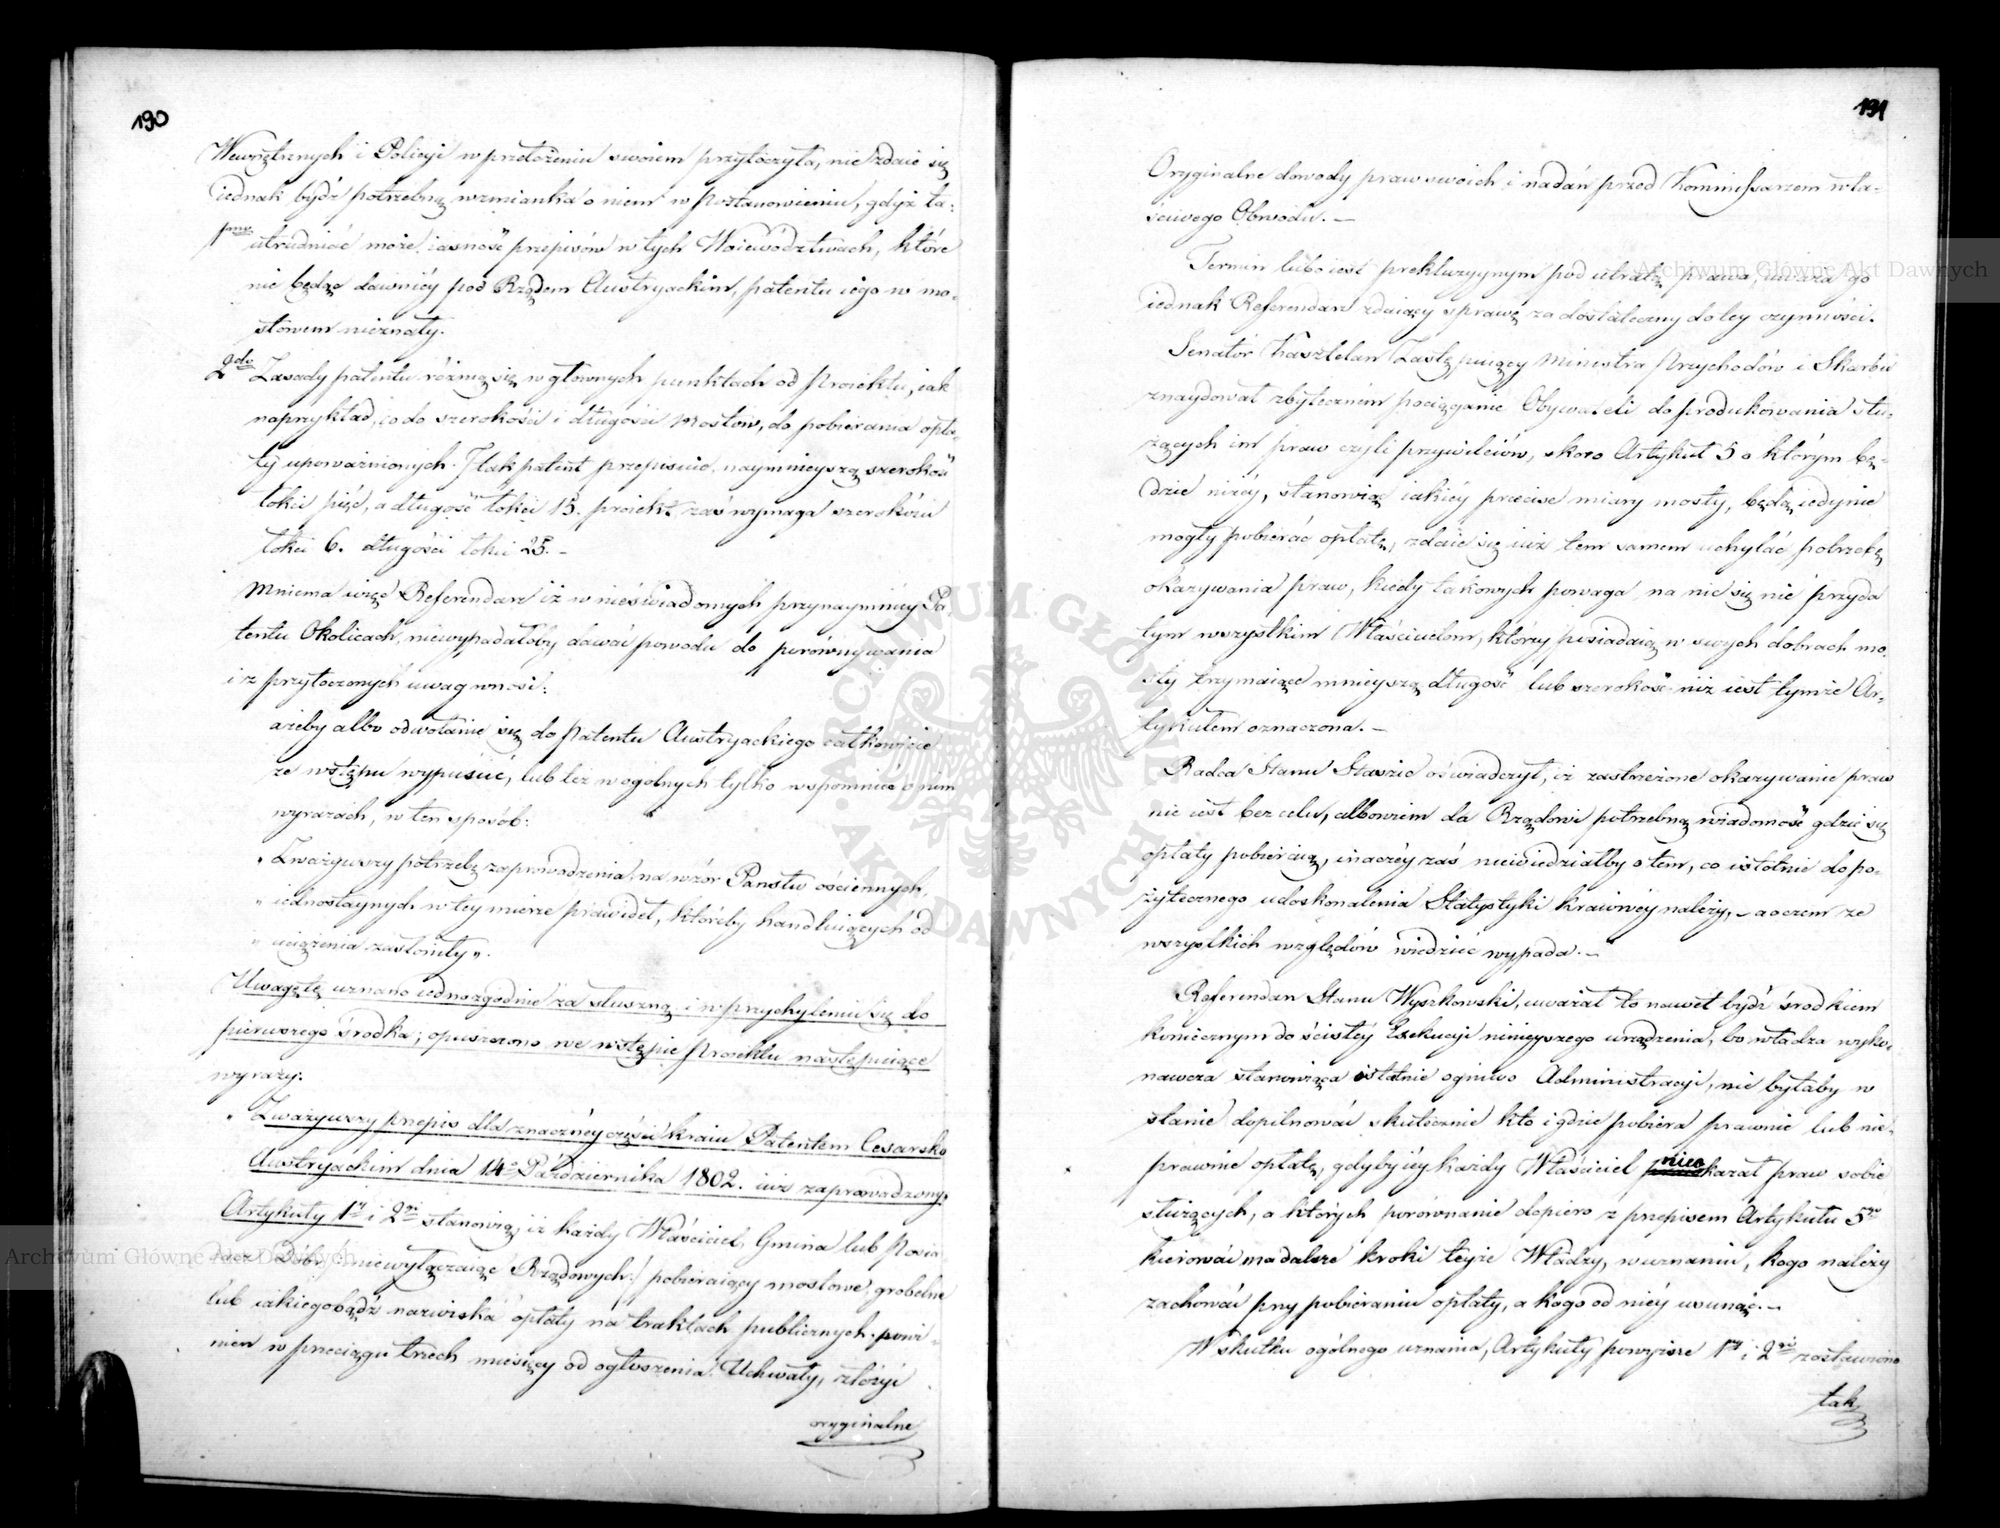 190
Wewnętrznych i Policyi w przełożeniu swoiem przytoczyła, nie zdaie się
iednak bydź potrzebną wzmianka o niem w postanowieniu, gdyż ta:
1mo utrudniać może iasność przepisów w tych Woiewództwach, które
nie będąc dawniéy pod Rządem Austryackim, patentu iego w mo-
stowem nieznały.
2do Zasady patentu różnią się w głównych punktach od Proiektu, iak
naprzykład, co do szerokości i długości mostów, do pobierania opła-
ty upoważnionych. I tak patent przepisuie naymnieyszą szerokość
łokci pięć, a długość łokci 15. proiekt zaś wymaga szerokości
łokci 6. długości łokci 25. –
Mniema więc Referendarz iż w nieświadomych przynaymniéy Pa
tentu Okolicach, niewypadałoby dawać powodu do porównywania
i z przytoczonych uwag wnosi:
ażeby albo odwołanie się do Patentu Austryackiego całkowicie
ze wstępu wypuścić, lub też w ogólnych tylko wspomnieć o nim
wyrazach, w ten sposób:
„ Zważywszy potrzebę zaprowadzenia, na wzór Państw ościennych,
„ iednostaynych w tey mierze prawideł, któreby handluiących od
„ uciążenia zasłoniły „.
Uwagę tę uznano iednozgodnie za słuszną i w przychyleniu się do
pierwszego środka; opuszczono we wstępie Proiektu następuiące
wyrazy:
„ Zważywszy przepis dla znacznéy części kraiu Patentem Cesarsko
Austryackim dnia 14o Października 1802. iuż zaprowadzony„
Artykuły 1y i 2gi stanowią iż każdy Właściciel, Gmina lub Posia
dacz Dóbr, niewyłączaiąc Rządowych:/ pobieraiący mostowe, grobelne
lub iakiegobądź nazwiska opłaty na traktach publicznych, powi-
nien w przeciągu trzech miesięcy od ogłoszenia Uchwały, złożyć
oryginalne
191
Oryginalne dowody praw swoich i nadań przed Kommissarzem wła-
ściwego Obwodu. –
Termin lubo iest prekluzyynym pod utratą prawa, uważa go
iednak Referendarz zdaiący sprawę za dostateczny do tey czynności.
Senator Kasztelan Zastępuiący Ministra Przychodów i Skarbu
znaydował zbytecznem pociąganie Obywateli do produkowania słu-
żących im praw czyli przywileiów, skoro Artykuł 5 o którym bę-
dzie niżéy, stanowiąc iakiéy precise miary mosty, będą iedynie
mogły pobierać opłatę, zdaie się iuż tem samem uchylać potrzebę
okazywania praw, kiedy takowych powaga na nic się nie przyda
tym wszystkim Właścicielom, którzy posiadaią w swych dobrach mo-
sty trzymaiące mnieyszą długość lub szerokość niż iest tymże Ar-
tykułem oznaczona. –
Radca Stanu Staszic oświadczył, iż zastrzeżone okazywanie praw
nie iest bez celu, albowiem da Rządowi potrzebną wiadomość gdzie się
opłaty pobieraią, inaczéy zaś niewiedziałby o tem, co istotnie do po-
żytecznego udoskonalenia Statystyki kraiowéy należy, – a o czem ze
wszystkich względów wiedzieć wypada. –
Referendarz Stanu Wyszkowski, uważał to nawet bydź środkiem
koniecznym do ścisłéy Exekucyi ninieyszego urządzenia, bo władza wyko-
nawcza stanowiąca ostatnie ogniwo Administracyi, nie byłaby w
stanie dopilnować skutecznie kto i gdzie pobiera prawnie lub nie-
prawnie opłatę, gdyby iéy każdy Właściciel nieokazał praw sobie
służących, a których porównanie dopiero z przepisem Artykułu 5go
kierować ma dalsze kroki teyże Władzy, w uznaniu, kogo należy
zachować przy pobieraniu opłaty, a kogo od niéy usunąć. –
W skutku ogólnego uznania, Artykuły powyższe 1y i 2gi zostawiono
tak
Archiwum Główne Akt Dawnych
Archiwum Główne Akt Dawnych
ARCHIWUM GŁÓWNE AKT DAWNYCH